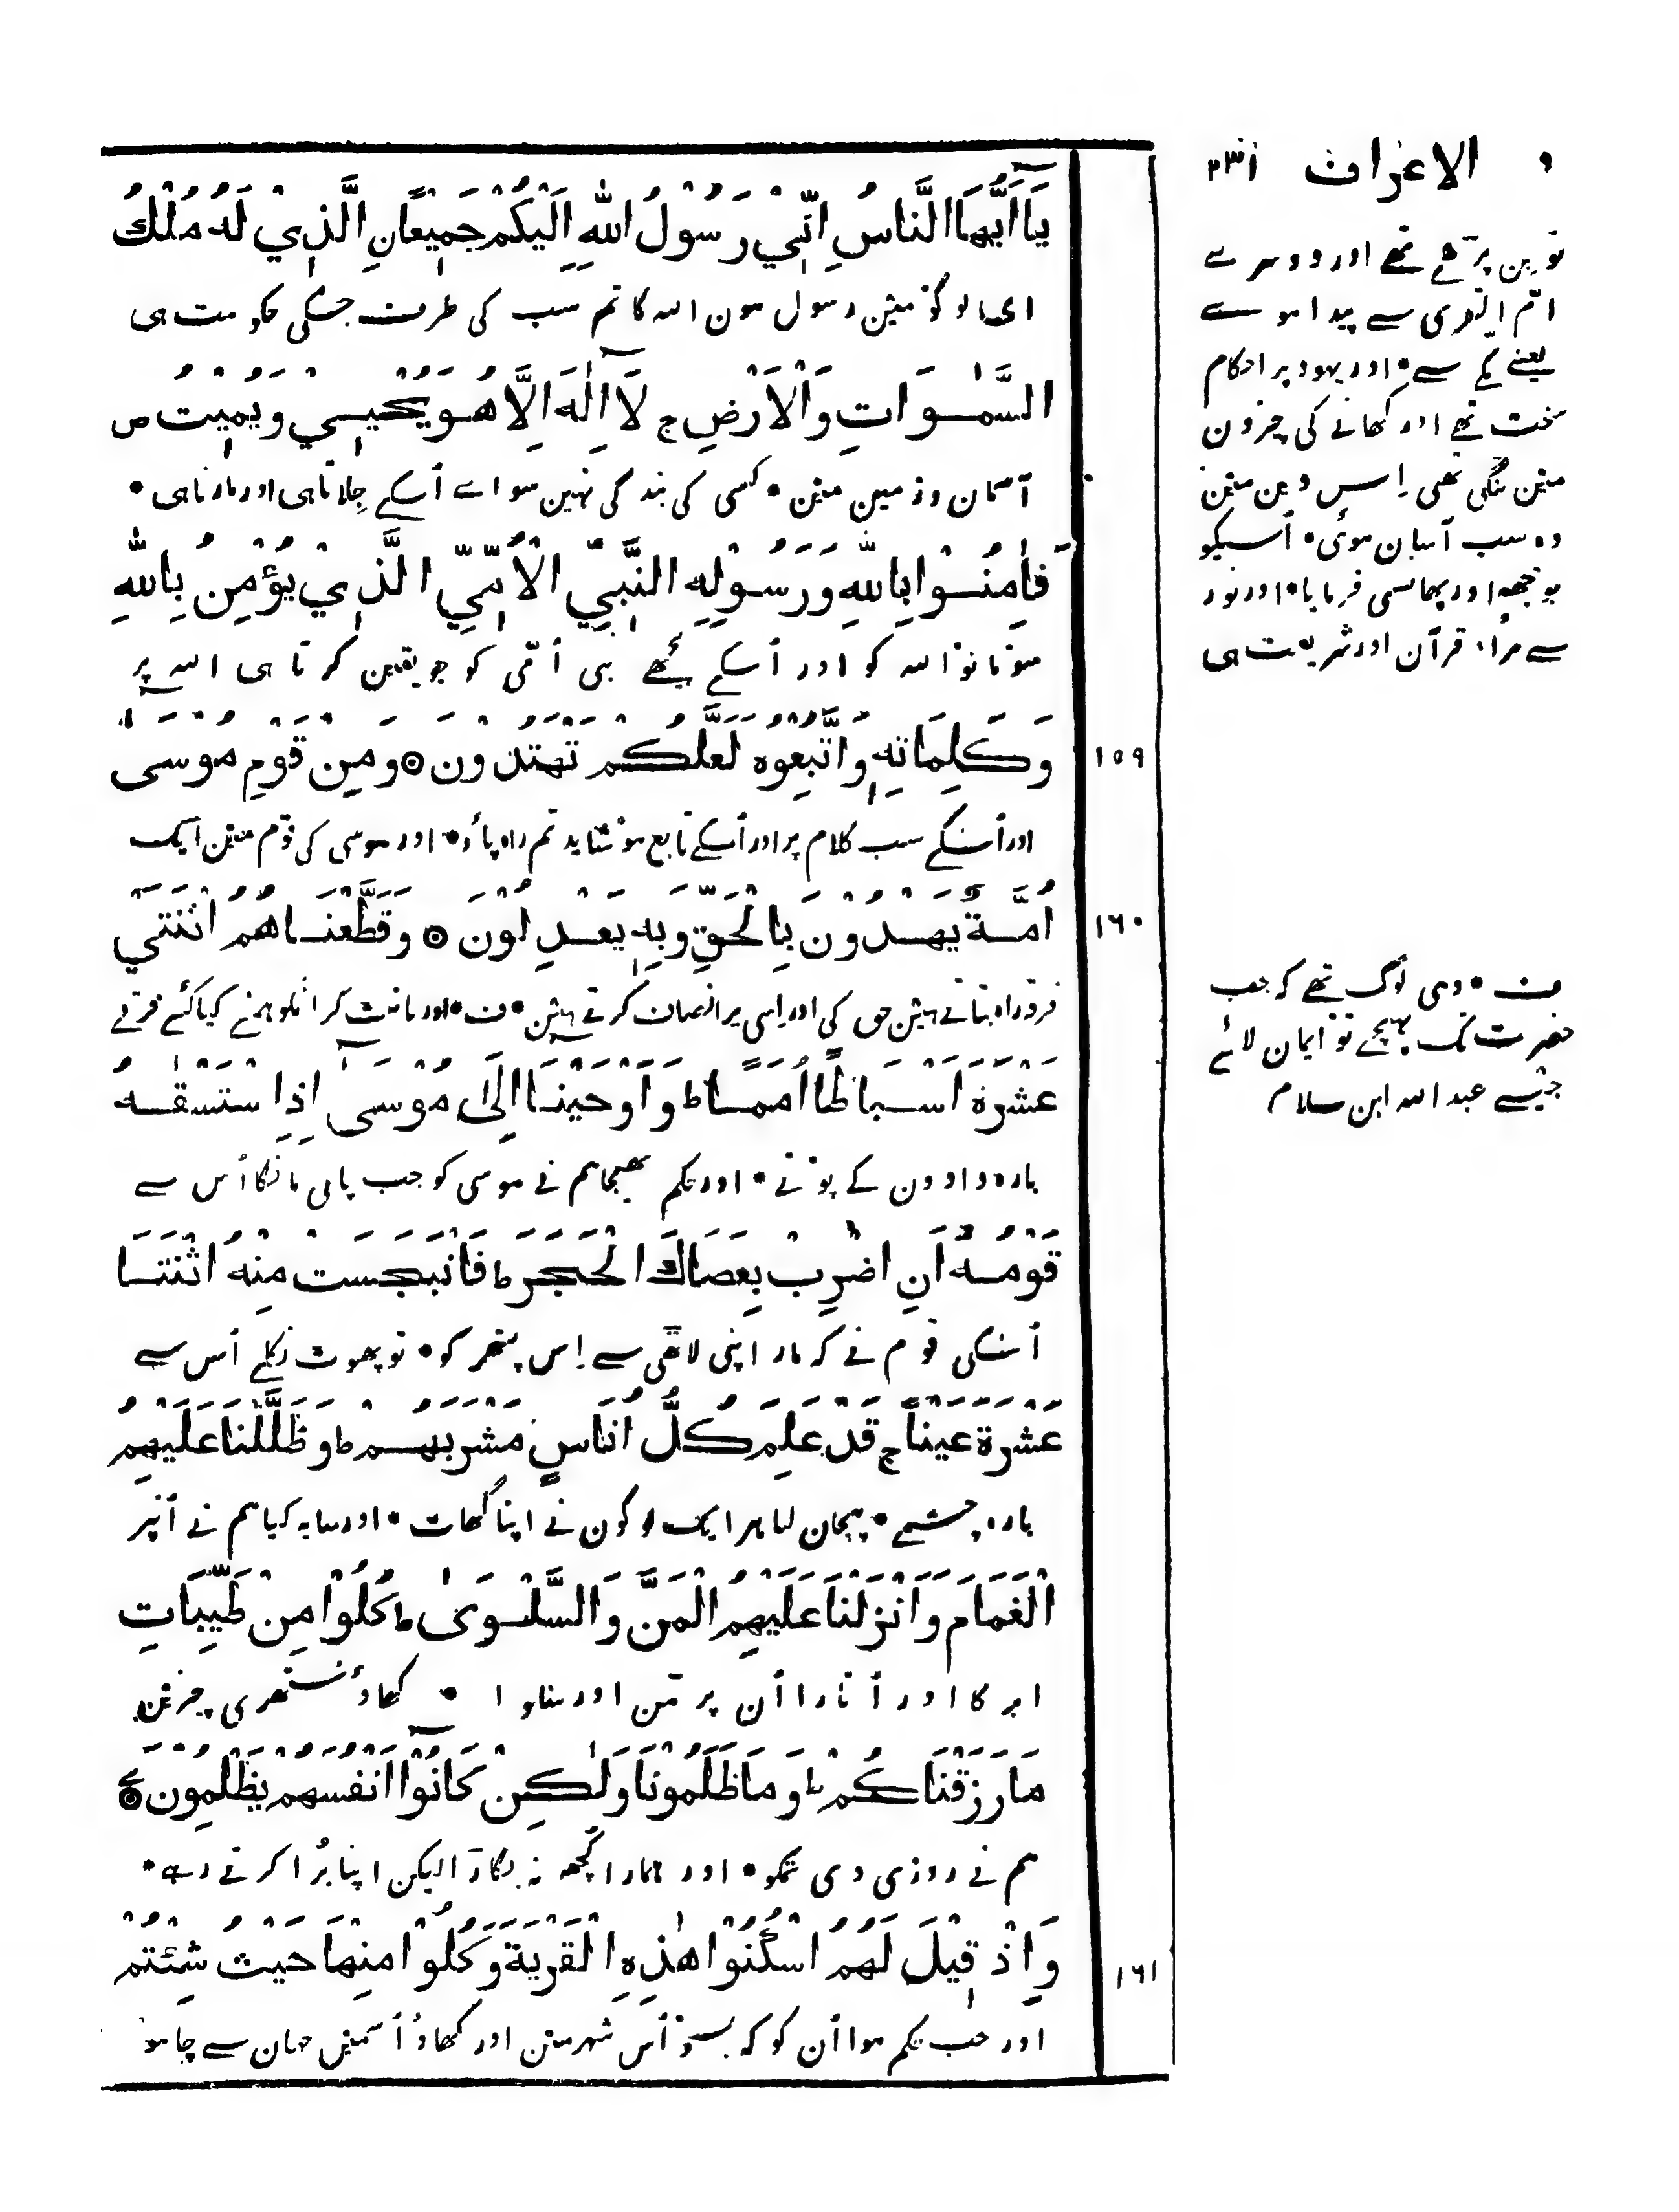 ٩ الاعراف ٢٣١
يَاأَيُّهَا النَّاسُ اِنِّيْ رَسُوْلُ اللهِ اِلَيْكُمْ جَمِيْعَانِ الَّذِيْ لَهُ مُلْكُ
اى لوگو مين رسول هون الله كا تم سب كى طرف جسكى حكومت هى
السَّمٰوَاتِ وَالْاَرْضِ ج لَا اِلٰهَ اِلَّا هُوَ يُحْيِيْ وَيُمِيْتُ ص
آسمان و زمين مين • كسى كى بندگى نهين سواے اُسكے جِلاتا هى اور مارتا هى •
فَاٰمِنُوْا بِاللهِ وَرَسُوْلِهِ النَّبِيِّ الْاُمِّيِّ الَّذِيْ يُؤْمِنُ بِاللهِ
سو مانو الله كو اور اُسكے بھيجے نبى اُمّى كو جو يقين كرتا هى الله پر
وَكَلِمَاتِهٖ وَاتَّبِعُوْهُ لَعَلَّكُمْ تَهْتَدُوْنَ ۞ وَمِنْ قَوْمِ مُوْسَى ١٥٩
اور اُسكے سب كلام پر اور اُسكے تابع هو شايد تم راه پاؤ • اور موسى كى قوم مين ايك
اُمَّةٌ يَهْدُوْنَ بِالْحَقِّ وَبِهٖ يَعْدِلُوْنَ ۞ وَقَطَّعْنَاهُمُ اثْنَتَيْ ١٦٠
فرقه راه بتاتے هين حق كى اور اسى پر انصاف كرتے هين • ف • اور بانٹ كر انكو همنے كيا كئے فرقے
عَشْرَةَ اَسْبَاطًا اُمَمًا ط وَاَوْحَيْنَا اِلَى مُوْسَى اِذِ اسْتَسْقٰهُ
باره دادون كے پوتے • اور حكم بھيجا هم نے موسى كو جب پانى مانگا اُس سے
قَوْمُهٗ اَنِ اضْرِبْ بِعَصَاكَ الْحَجَرَ ط فَانْبَجَسَتْ مِنْهُ اثْنَتَا
اُسكى قوم نے كه مار اپنى لاٹھى سے اِس پتھر كو • تو پھوٹ نكلے اُس سے
عَشْرَةَ عَيْنًا ج قَدْ عَلِمَ كُلُّ اُنَاسٍ مَشْرَبَهُمْ ط وَظَلَّلْنَا عَلَيْهِمُ
باره چشمے • پہچان ليا هر ايك لوگون نے اپنا گھاٹ • اور سايه كيا هم نے اُنپر
الْغَمَامَ وَاَنْزَلْنَا عَلَيْهِمُ الْمَنَّ وَالسَّلْوَىٰ ط كُلُوْا مِنْ طَيِّبَاتِ
ابر كا اور اُتارا اُن پر مَن اور سلوا • كھاؤ ستھرى چيزين
مَا رَزَقْنَاكُمْ ط وَمَا ظَلَمُوْنَا وَلٰكِنْ كَانُوْا اَنْفُسَهُمْ يَظْلِمُوْنَ ۞ ع
هم نے روزى دى تمكو • اور همارا كُچھه نه بگاڑا ليكن اپنا بُرا كرتے رهے •
وَاِذْ قِيْلَ لَهُمُ اسْكُنُوْا هٰذِهِ الْقَرْيَةَ وَكُلُوْا مِنْهَا حَيْثُ شِئْتُمْ ١٦١
اور جب حكم هوا اُن كو كه بسو اُس شہر مين اور كھاؤ اُسمين جہان سے چاهو
نهين پڑھے تھے اور دوسرے
امّ القرى سے پيدا هوے
يعنے مكّے سے • اور يہود پر احكام
سخت تھے اور كھانے كى چيزون
مين تنگى تھى اِس دين مين
وه سب آسان هوئى • اُسيكو
بوجھه اور پھانسى فرمايا • اور نور
سے مراد قرآن اور شريعت هى
ف • وهى لوگ تھے كه جب
حضرت تك پہنچے تو ايمان لائے
جيسے عبد الله ابن سلام